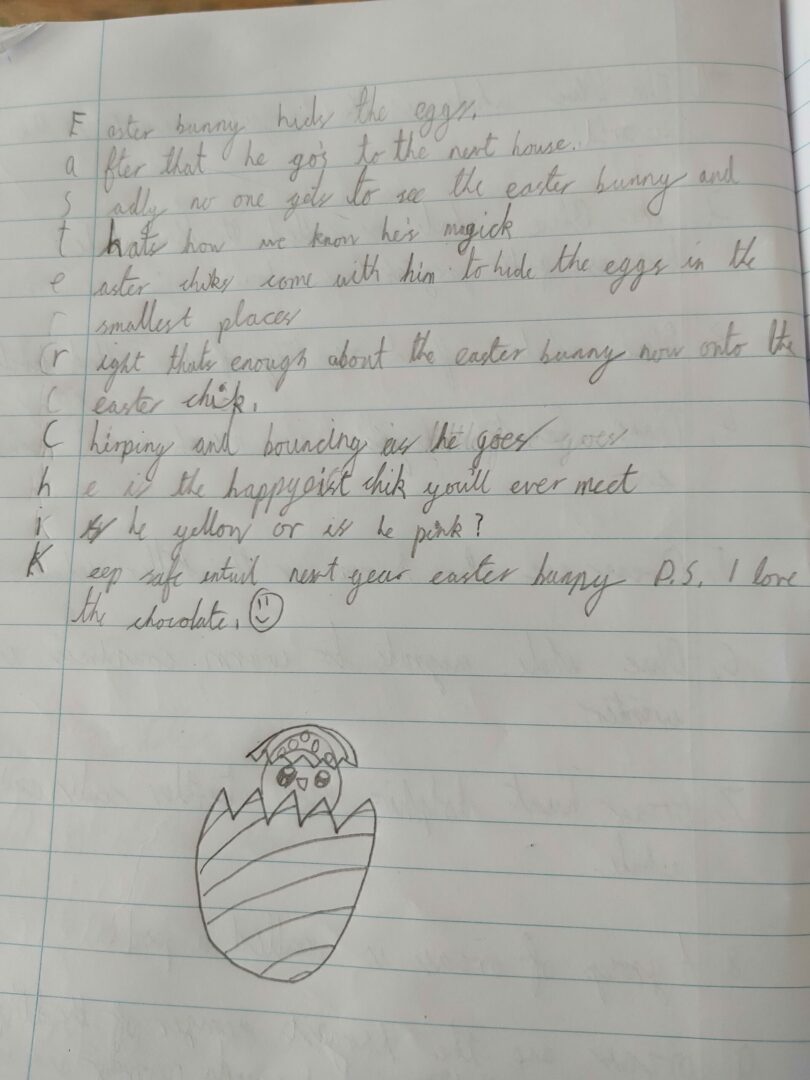 Easter bunny hids the eggs.
after that he go's to the next house.
sadly no one gets to see the easter bunny and
thats how we know he's magick
easter chiks come with him to hide the eggs in the
smallest places
right thats enough about the easter bunny now onto the
easter chik.
Chirping and bouncing as he goes goes
he is the happyoist chik you'll ever meet
is he yellow or is he pink?
Keep safe intuil next year easter bunny P.S. I love
the chocolate.